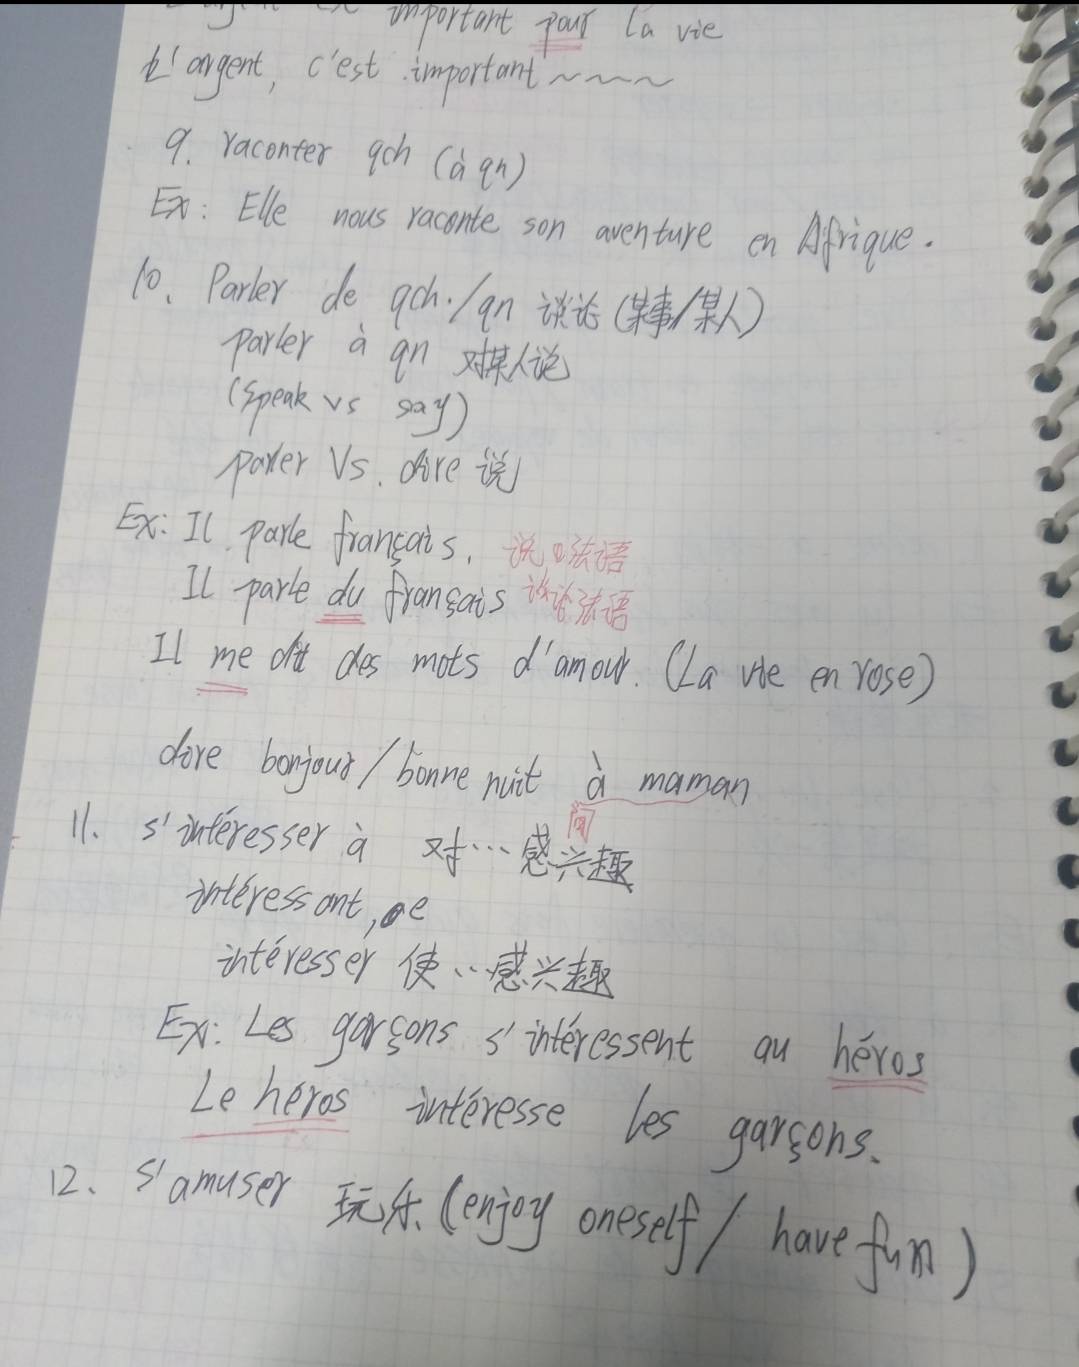 L'argent est important pour la vie
L'argent, c'est important~~~~
9. raconter qch (à qn)
Ex: Elle nous raconte son aventure en Afrique.
10. Parler de qch./qn 谈论(某事/某人)
parler à qn 对某人说
(speak vs say)
parler Vs. dire 说
Ex: Il parle français. 说法语
Il parle du français 谈论法语
Il me dit des mots d'amour. (La vie en rose)
dire bonjour/bonne nuit à maman
向
11. s'intéresser à 对…感兴趣
intéressant, e
intéresser 使…感兴趣
Ex: Les garçons s'intéressent au héros
Le héros intéresse les garçons.
12. s'amuser 玩乐 (enjoy oneself / have fun)